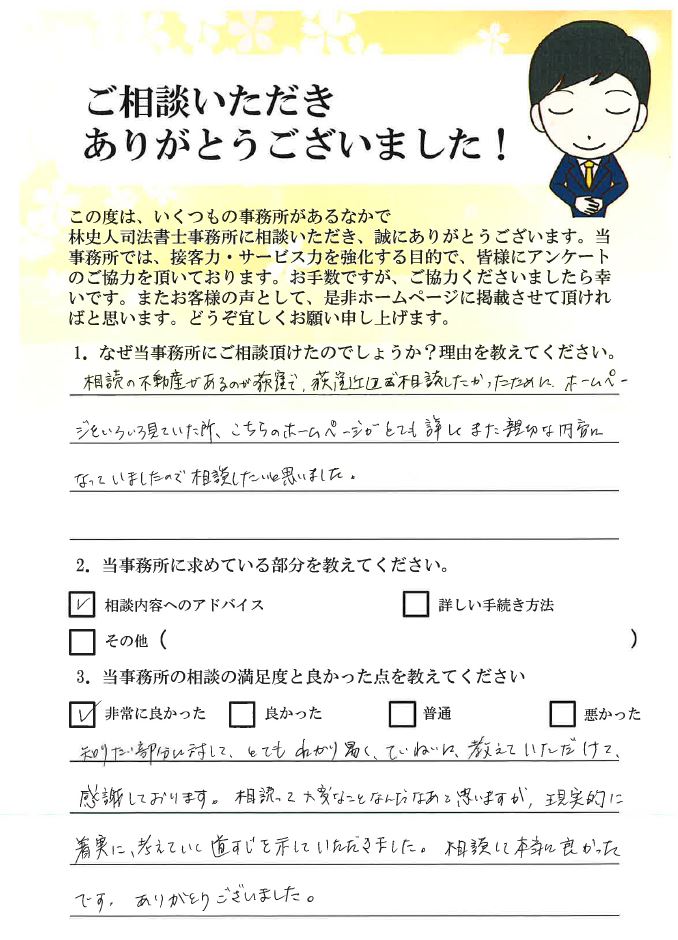 ご相談いただき
ありがとうございました！
この度は、いくつもの事務所があるなかで
林史人司法書士事務所に相談いただき、誠にありがとうございます。当
事務所では、接客力・サービス力を強化する目的で、皆様にアンケート
のご協力を頂いております。お手数ですが、ご協力くださいましたら幸
いです。またお客様の声として、是非ホームページに掲載させて頂けれ
ばと思います。どうぞ宜しくお願い申し上げます。
1．なぜ当事務所にご相談頂けたのでしょうか？理由を教えてください。
相続の不動産があるのが荻窪で、荻窪近辺で相談したかったために、ホームペー
ジをいろいろ見ていた所、こちらのホームページがとても詳しくまた親切な内容に
なっていましたので相談したいと思いました。
2．当事務所に求めている部分を教えてください。
相談内容へのアドバイス 詳しい手続き方法
その他（ ）
3．当事務所の相談の満足度と良かった点を教えてください
非常に良かった 良かった 普通 悪かった
知りたい部分に対して、とてもわかり易く、ていねいに、教えていただけて、
感謝しております。相続って大変なことなんだなあと思いますが、現実的に
着実に、考えていく道すじを示していただきました。相談して本当に良かった
です。ありがとうございました。